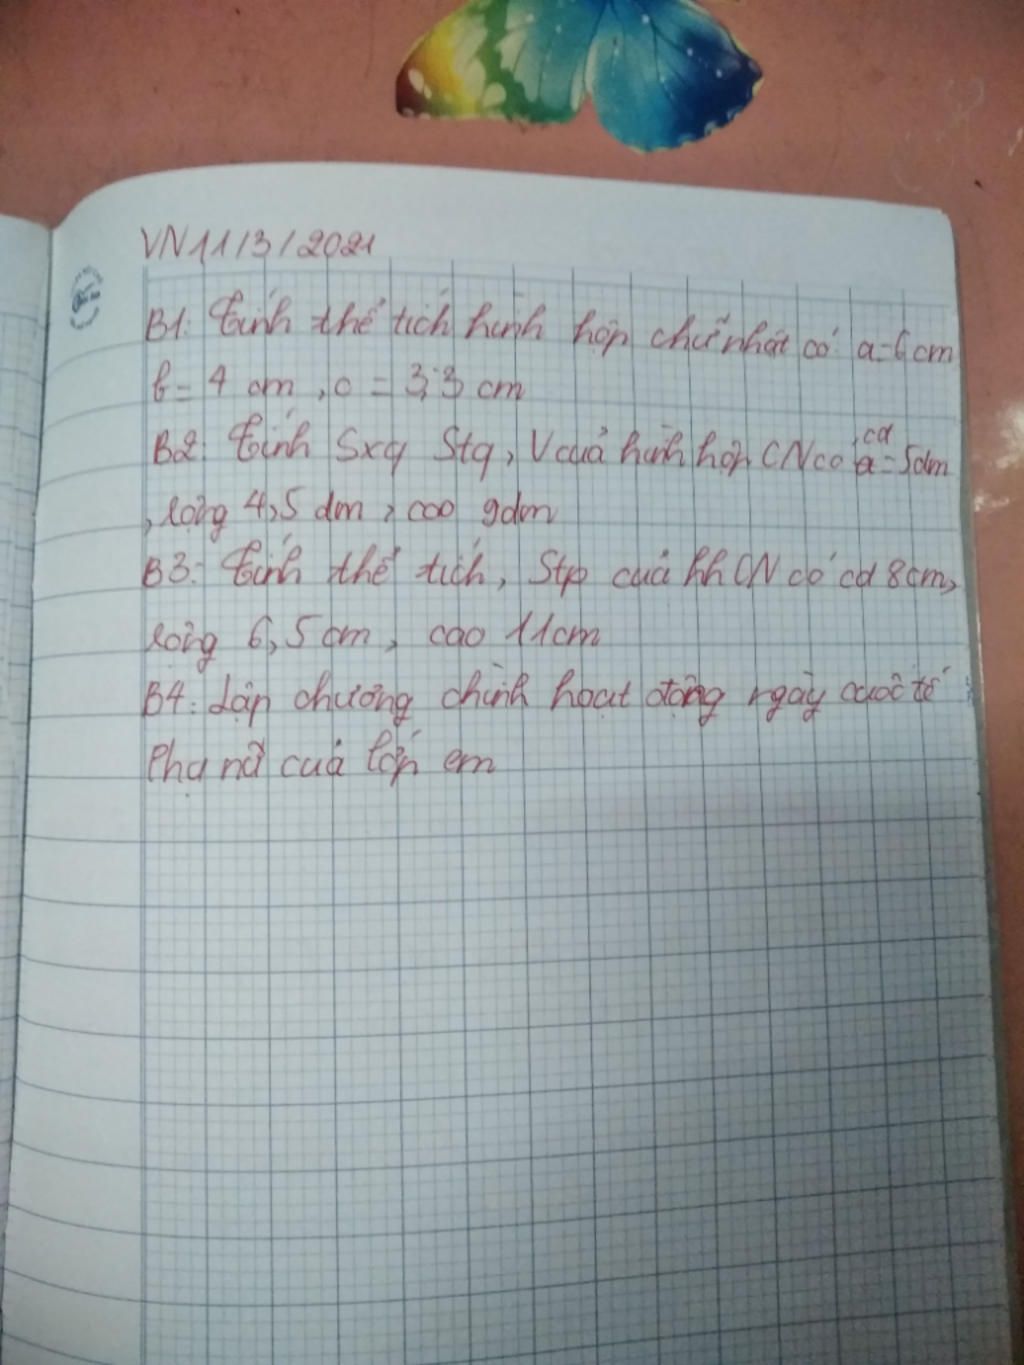 VN 11/3/2021
B1: Tính thể tích hình hộp chữ nhật có a=6cm
b= 4 cm, c = 3,3 cm
B2: Tính Sxq Stq, V của hình hộp CN có a cd = 5dm
, rộng 4,5 dm, cao 9dm
B3: Tính thể tích, Stp của hh CN có cd 8cm,
rộng 6,5cm, cao 11cm
B4: Lập chương chình hoạt động ngày quốc tế
Phụ nữ của lớp em